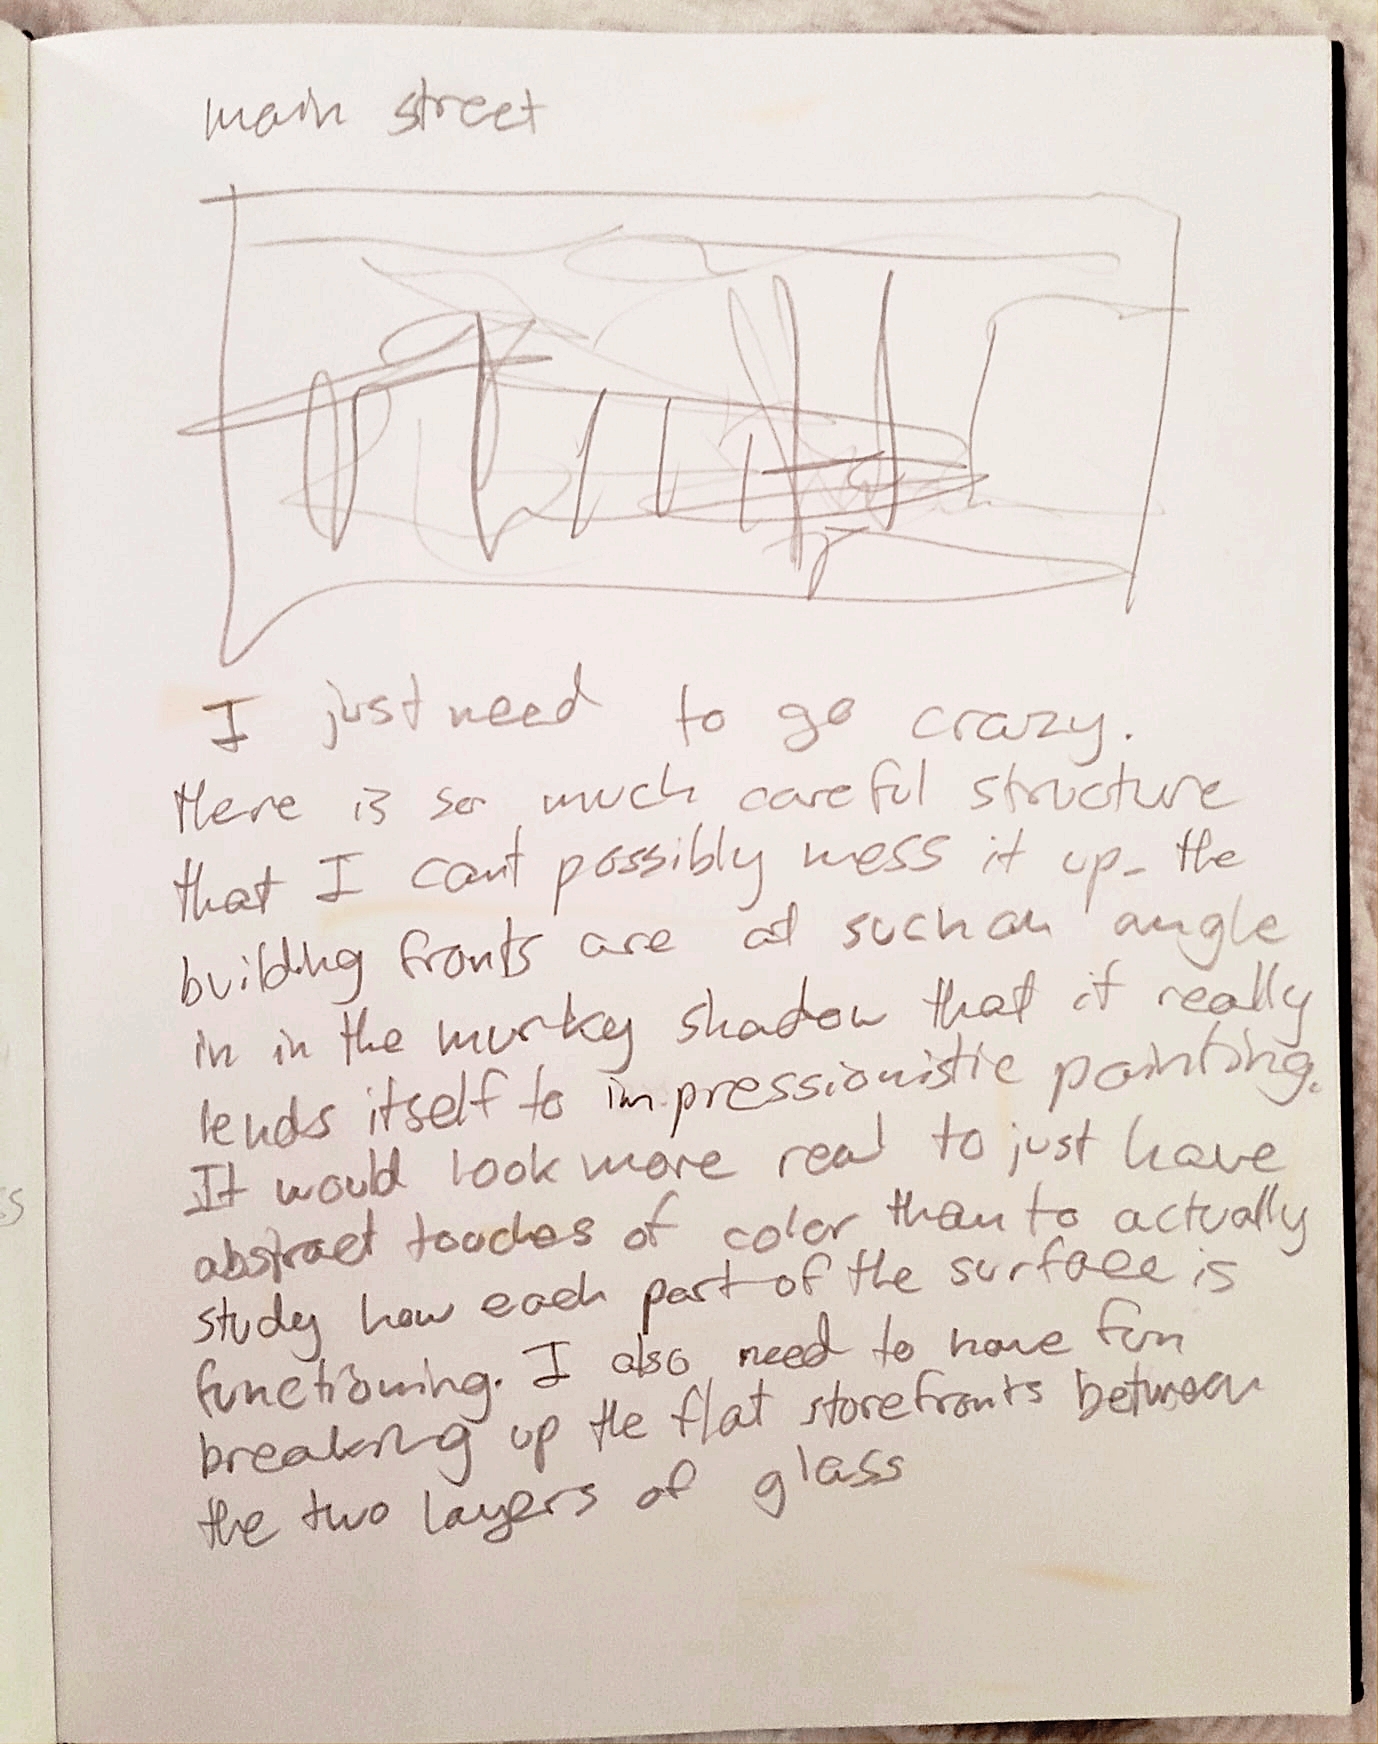 main street
I just need to go crazy.
there is so much careful structure
that I cant possibly mess it up_ the
building fronts are at such an angle
in in the murky shadow that it really
lends itself to impressionistic painting.
It would look more real to just have
abstract touches of color than to actually
study how each part of the surface is
functioning. I also need to have fun
breaking up the flat storefronts between
the two layers of glass